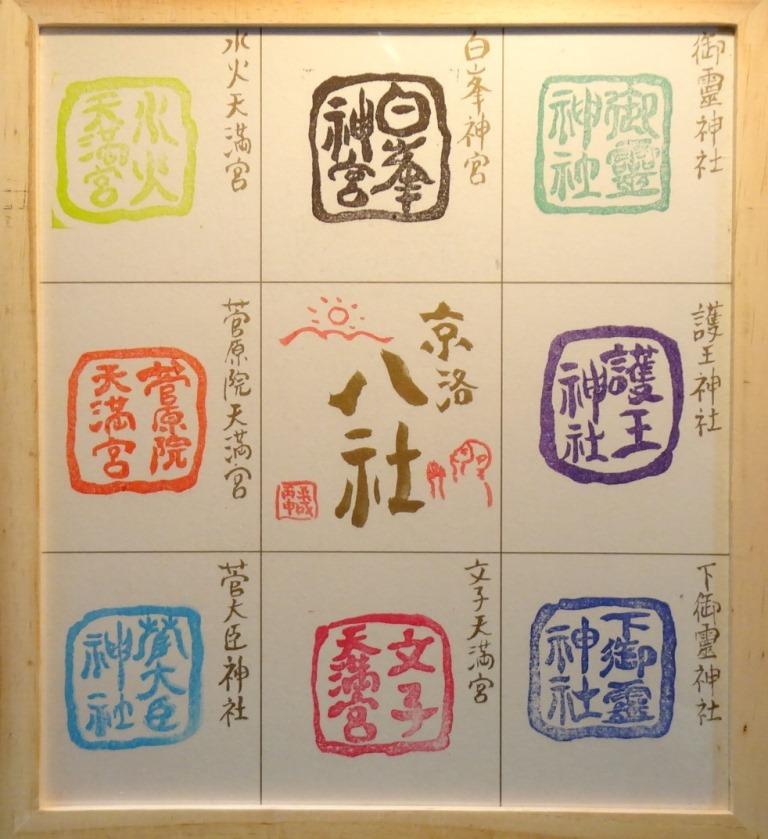 御靈神社
御靈
神社
白峯神宮
白峯
神宮
水火天満宮
水火
天満宮
護王神社
護王
神社
京洛
八社
平成
丙申
菅原院天満宮
菅原院
天満宮
下御靈神社
下御靈
神社
文子天満宮
文子
天満宮
菅大臣神社
菅大臣
神社